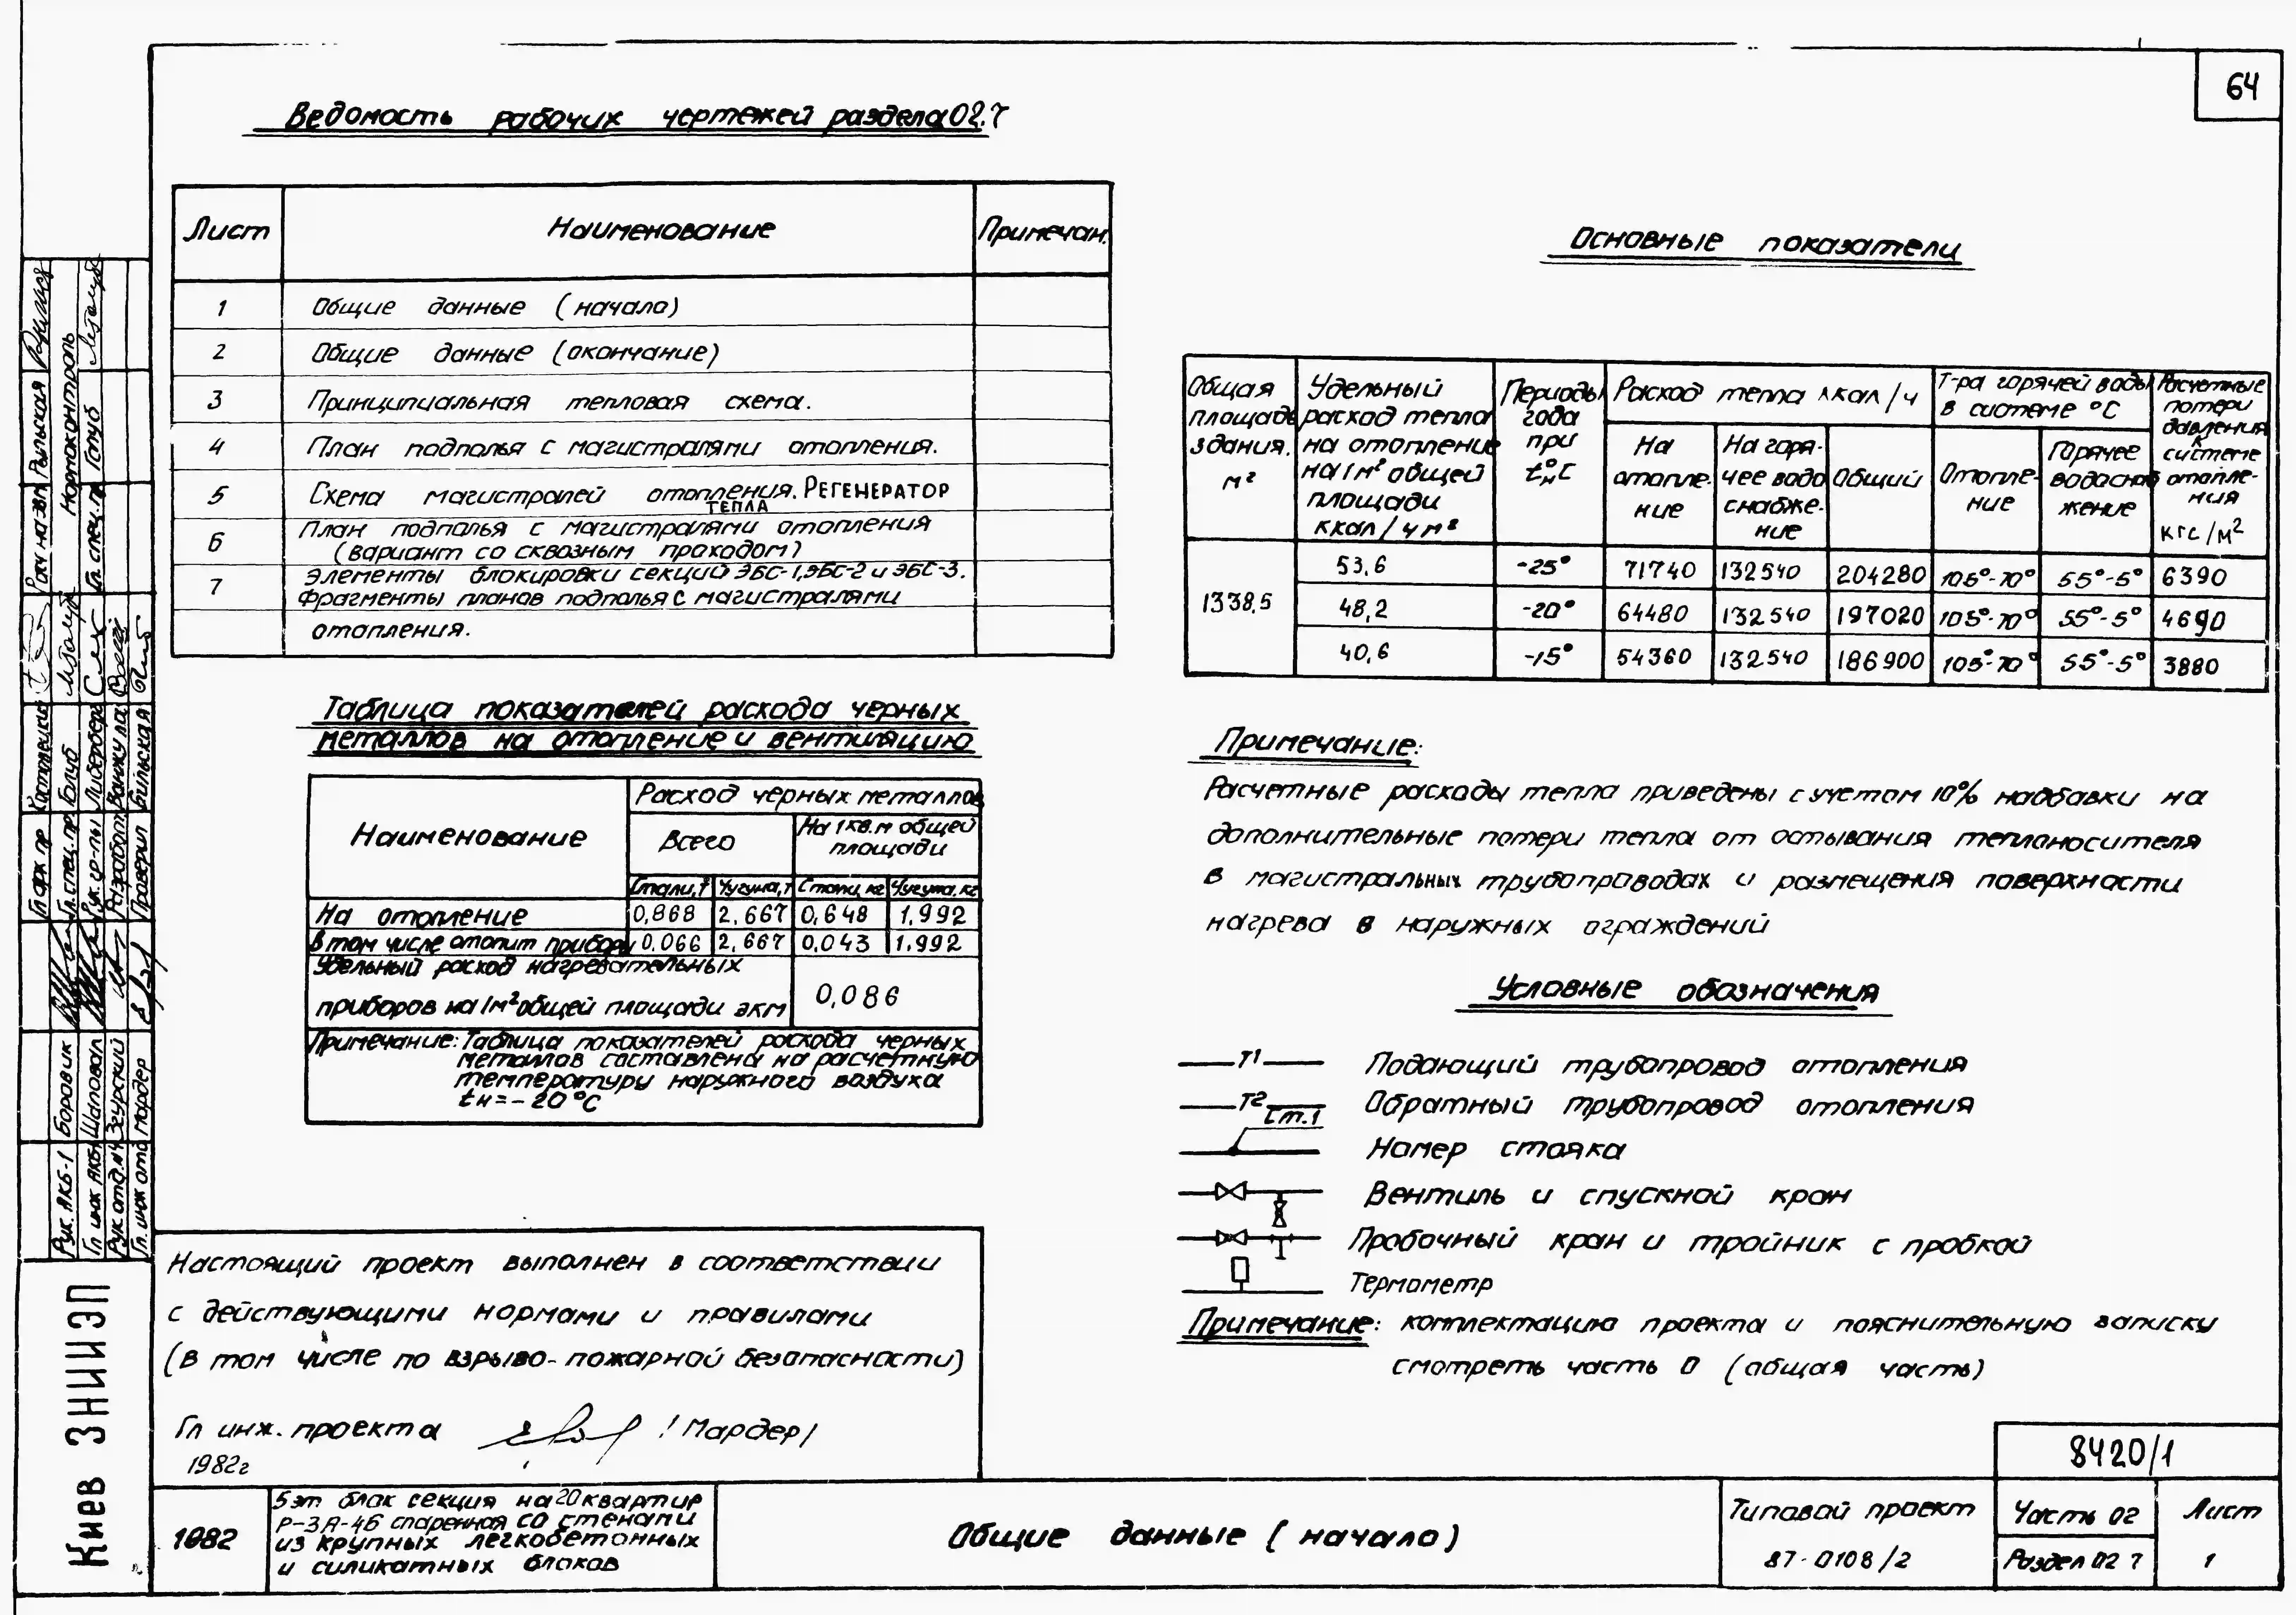 64
Ведомость рабочих чертежей раздела 02.7
Лист Наименование Примечан.
1 Общие данные (начало)
2 Общие данные (окончание)
3 Принципиальная тепловая схема.
4 План подполья с магистралями отопления.
5 Схема магистралей отопления. РЕГЕНЕРАТОР
ТЕПЛА
6 План подполья с магистралями отопления
(вариант со сквозным проходом)
7 Элементы блокировки секций ЭБС-1, ЭБС-2 и ЭБС-3.
Фрагменты планов подполья с магистралями
отопления.
Таблица показателей расхода черных
металлов на отопление и вентиляцию
Наименование
Расход черных металлов
Всего
На 1 кв.м общей
площади
Стали, т Чугуна, т Стали, кг Чугуна, кг
На отопление 0,868 2.667 0,648 1.992
В том числе отопит прибор 0.066 2,667 0,043 1.992
Удельный расход нагревательных
приборов на 1м² общей площади экм 0,086
Примечание: Таблица показателей расхода черных
металлов составлена на расчетную
температуру наружного воздуха
tн=-20°С
Настоящий проект выполнен в соответствии
с действующими нормами и правилами
(в том числе по взрыво-пожарной безопасности)
Гл инж. проекта /Мардер/
1982г
Основные показатели
Общая
площадь
здания.
м²
Удельный
расход тепла
на отопление
на 1м² общей
площади
ккал/ч м²
Периоды
года
при
tн°С
Расход тепла ккал/ч
На
отопле-
ние
На горя-
чее водо
снабже-
ние
Общий
Т-ра горячей воды
в системе °С
Отопле-
ние
Горячее
водоснаб
жение
Расчетные
потери
давления
к
системе
отопле-
ния
кгс/м²
1338,5
53,6 -25° 71740 132540 204280 105°-70° 55°-5° 6390
48,2 -20° 64480 132540 197020 105°-70° 55°-5° 4690
40,6 -15° 54360 132540 186900 105°-70° 55°-5° 3880
Примечание:
Расчетные расходы тепла приведены с учетом 10% надбавки на
дополнительные потери тепла от остывания теплоносителя
в магистральных трубопроводах и размещения поверхности
нагрева в наружных ограждений
Условные обозначения
Т1 Подающий трубопровод отопления
Т2 Обратный трубопровод отопления
Ст.1
Номер стояка
Вентиль и спускной кран
Пробочный кран и тройник с пробкой
Термометр
Примечание: комплектацию проекта и пояснительную записку
смотреть часть 0 (общая часть)
8420/1
1982
5эт блок секция на 20 квартир
Р-3А-4Б спаренная со стенами
из крупных легкобетонных
и силикатных блоков
Общие данные (начало)
Типовой проект
87-0108/2
Часть 02
Раздел 02 7
Лист
1
Киев ЗНИИЭП
Рук. АКБ-1 Боровик
Гл инж АКБ-1 Шаповал
Рук. отд. №4 Згурский
Гл. инж отд Мардер
Гл. спец. пр. Голуб
Рук. гр-пы Либерберг
Проверил Бильская
Нормоконтроль
Гл. спец. пр Голуб